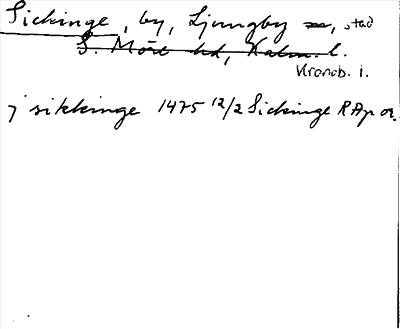 Sickinge, by, Ljungby sn, stad
S. Möre hd, Kalm. l.
Kronob. l.
j sikkinge 1475 12/2 Sickinge RAp or.